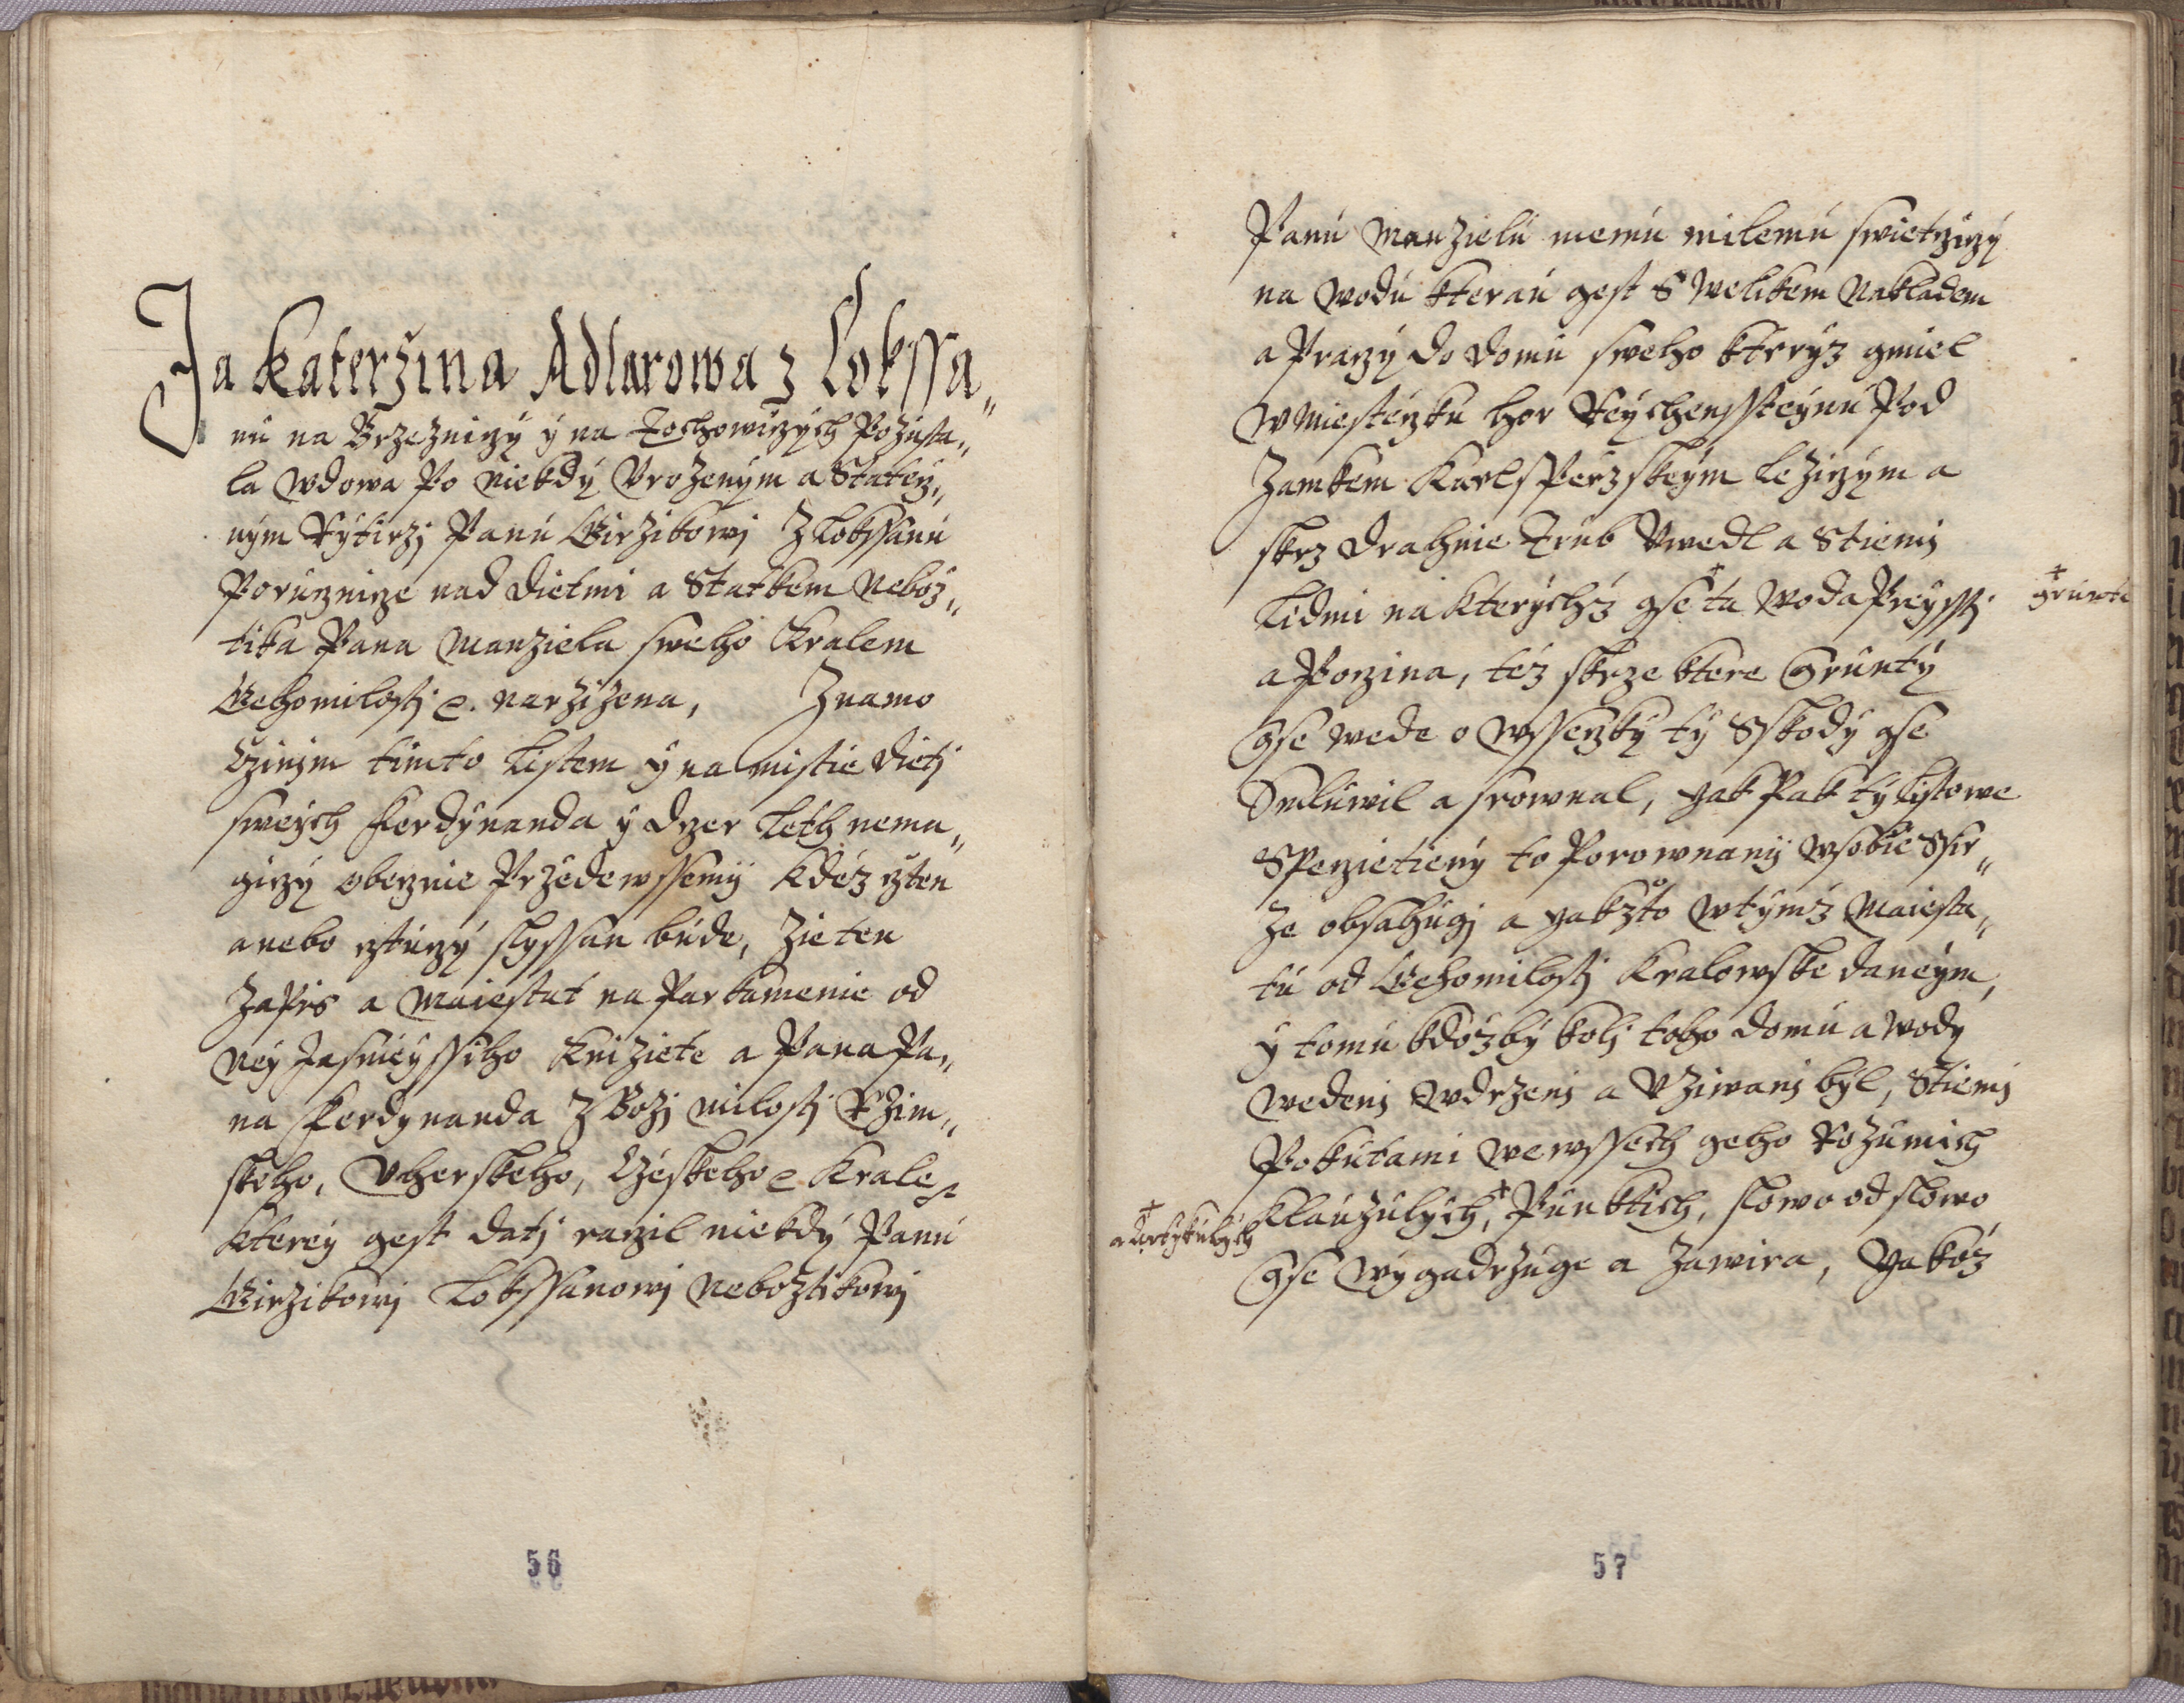 Ja Katerzina Adlarowa z Lokssa„
nu na Brzeznirzy y na Tochowirzych Pozusta„
la wdowa Po niekdy Vrozenym a Staterz„
nym Rytirzj Panu Girzikowj Z Lokssanu
Porucznirze nad dietmi a Statkem Neboz„
tika Pana Manziela sweho Kralem
Gehomilostj e. narzizena, Znamo
Czinim timto Listem y na mistie dietj
sweych Ferdynanda y dczer Leth nema„
girzy oberznie Przedewssemij kdez czten
a nebo cztucy slyssan bude, Zie ten
Zapis a Maiestat na Parkamenie od
Ney Jasnieyssiho Knizete a Pana Pa„
na Ferdynanda Z Bozj Milostj Rzim„
skeho, Vherskeho, Czeskeho e Krale e
kterey gest datj raczil niekdy Panu
Girzikowj Lokssanowj Neboztikowj
56
Panu Manzielu memu milemu swietczicy
na wodu kterau gest S welikem Nakladem
a Praczy do domu sweho kteryz gmiel
w Miesteczku hor Reychenssteynu Pod
Zamkem Karlsperzskeym Lezicym a
skrz drahnie Trub Vwedl a Stiemj
Lidmi na kterychz gse ta Woda Preysstj
+ grunte
a Poczina, tez skrze ktere Grunty
Gse wede o wsseczky ty Sskody gse
Smluwil a srownal, yak Pak ty Listowe
Speczietieny to Porownanij w sobie Ssir„
ze obsahugj a yakzto w tymz Maiesta„
tu od Gehomilostj Kralowske daneym,
y tomu kdozby kolj toho domu a wody
wedenj w drzenj a Vziwanj byl, Stiemj
Pokutami we wssech geho Rozumich
Klauzulych, + Punktich, slowo od slowa
+ a Artykulych
Gse wygadrzuge a Zawira, yakoz
57